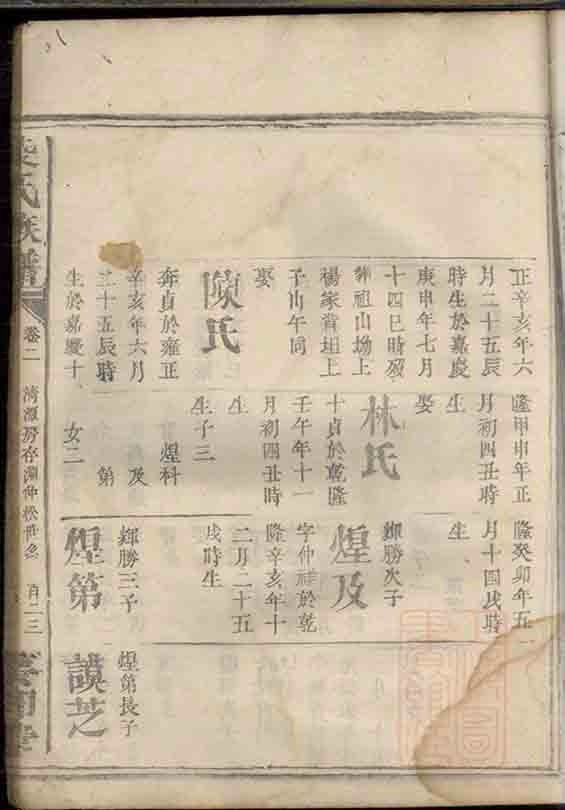 正辛亥年六
月二十五辰
時生於嘉慶
庚申年七月
十四巳時歿
葬祖山塲上
楊家嘗坦上
子山午向
娶
陳氏
奔貞於雍正
辛亥年六月
二十五辰時
生於嘉慶十
隆甲申年正
月初四丑時
生
娶
林氏
十貞於乾隆
壬午年十一
月初四丑時
生
生子三
煌科
及
第
女二
隆癸卯年五
月十四戌時
生
輝勝次子
煌及
字仲祥於乾
隆辛亥年十
二月二十五
戌時生
輝勝三子
煌第
煌第長子
謨芝
氏族譜
卷二
清源房存淵仲松世系
百二三